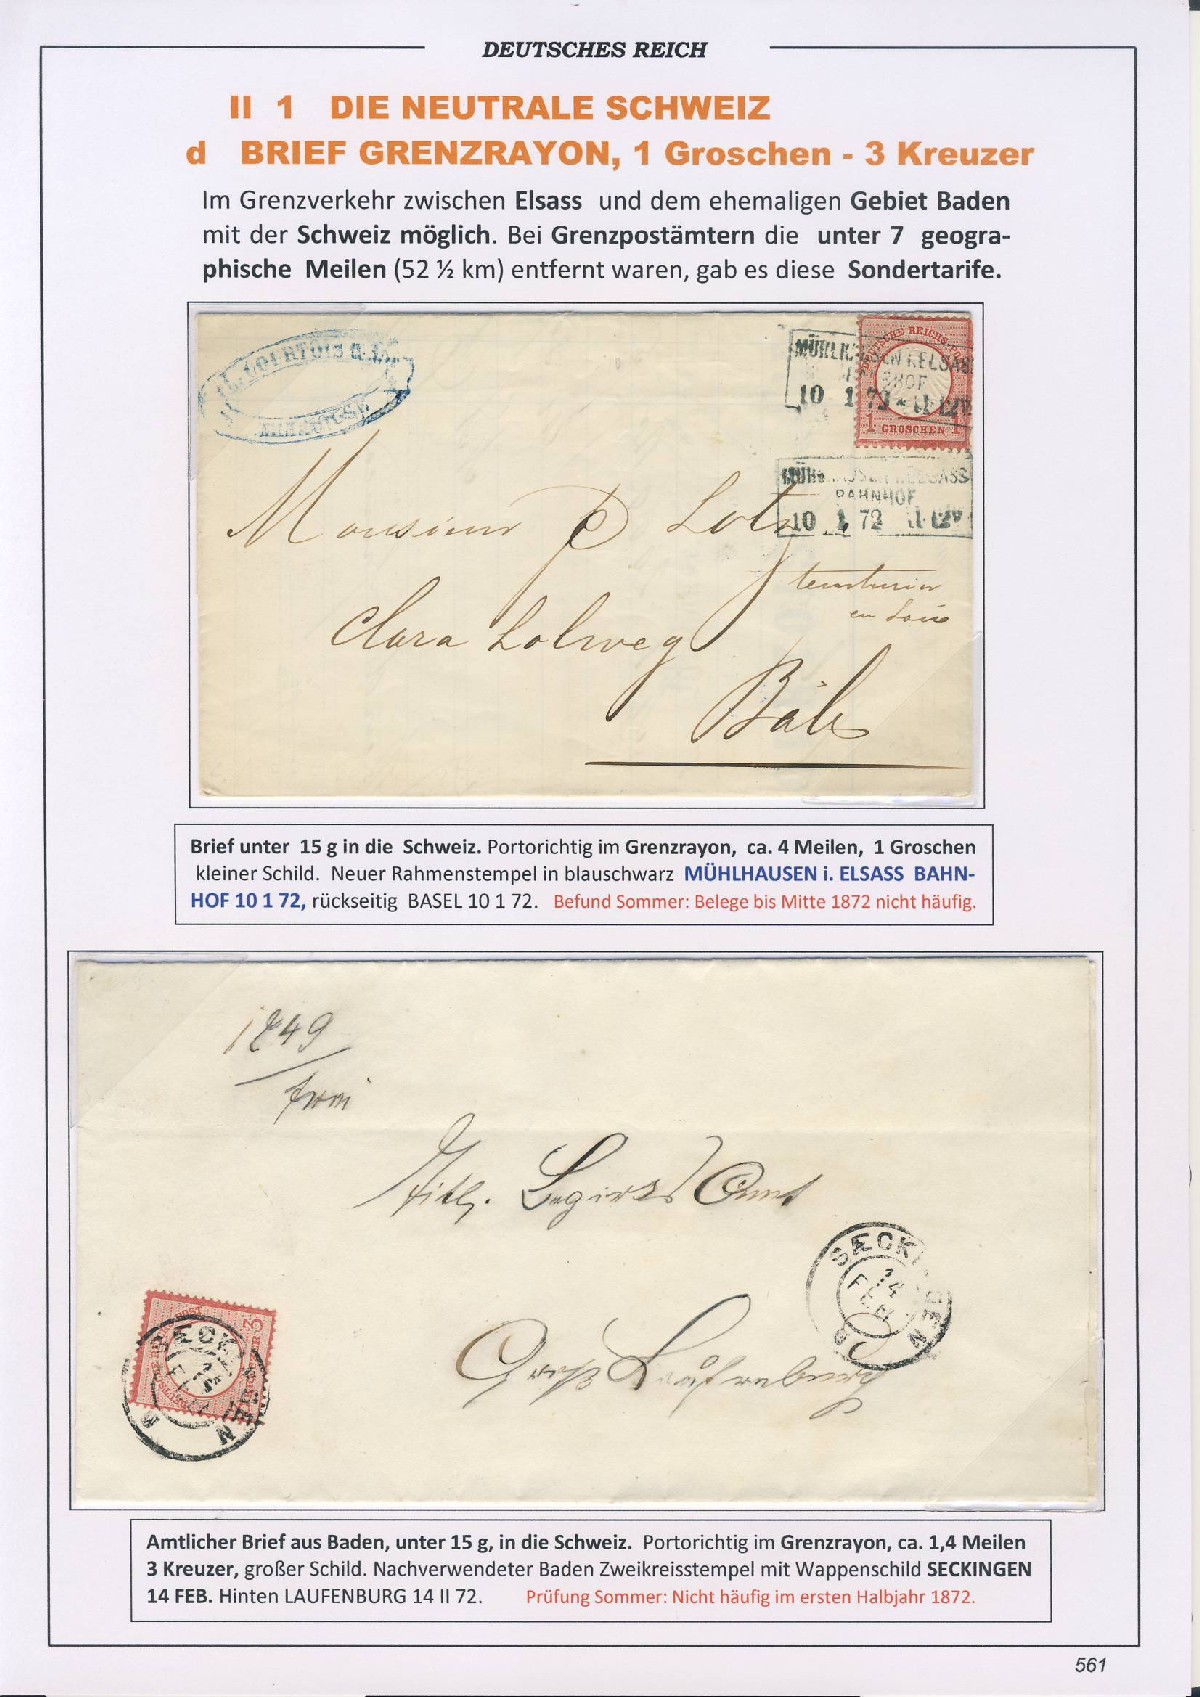 DEUTSCHES REICH
II 1 DIE NEUTRALE SCHWEIZ
d BRIEF GRENZRAYON, 1 Groschen - 3 Kreuzer
Im Grenzverkehr zwischen Elsass und dem ehemaligen Gebiet Baden
mit der Schweiz möglich. Bei Grenzpostämtern die unter 7 geogra-
phische Meilen (52 ½ km) entfernt waren, gab es diese Sondertarife.
MÜHLHAUSEN I. ELSASS
BAHNHOF
10 1 72
1 GROSCHEN 1
MÜHLHAUSEN I. ELSASS
BAHNHOF
10 1 72
Monsieur
Clara
Bâle
Brief unter 15 g in die Schweiz. Portorichtig im Grenzrayon, ca. 4 Meilen, 1 Groschen
kleiner Schild. Neuer Rahmenstempel in blauschwarz MÜHLHAUSEN i. ELSASS BAHN-
HOF 10 1 72, rückseitig BASEL 10 1 72. Befund Sommer: Belege bis Mitte 1872 nicht häufig.
1249
frei
Bezirks Amt
SÆCKINGEN
14
FEB.
Groß Laufenburg
SÆCKINGEN
Amtlicher Brief aus Baden, unter 15 g, in die Schweiz. Portorichtig im Grenzrayon, ca. 1,4 Meilen
3 Kreuzer, großer Schild. Nachverwendeter Baden Zweikreisstempel mit Wappenschild SECKINGEN
14 FEB. Hinten LAUFENBURG 14 II 72. Prüfung Sommer: Nicht häufig im ersten Halbjahr 1872.
561